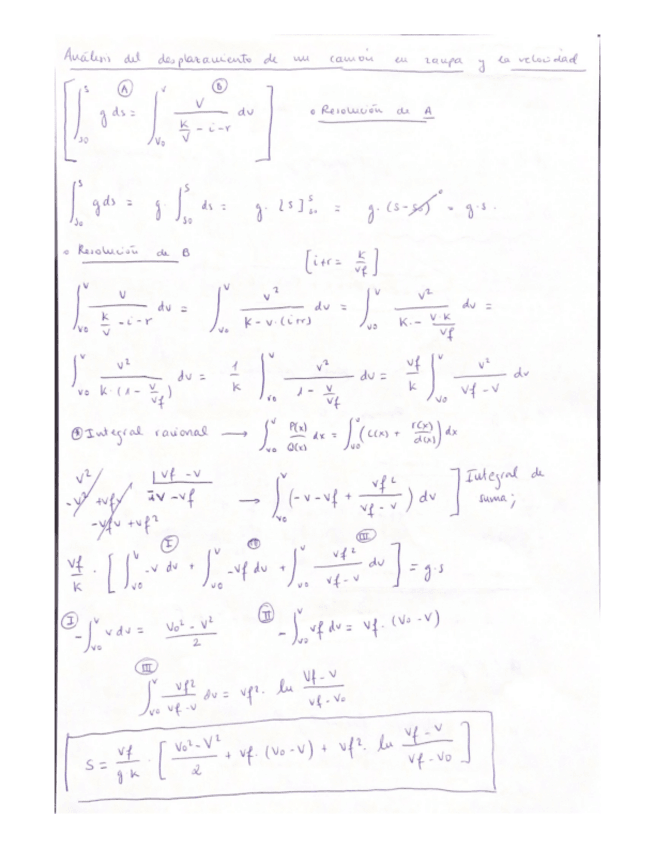 Análisis del desplazamiento de un camión en rampa y la velocidad
Ⓐ Ⓑ
[ ∫_{s0}^{s} g ds = ∫_{v0}^{v} v / (k/v - i - r) dv ] • Resolución de A
∫_{s0}^{s} g ds = g · ∫_{s0}^{s} ds = g · [s]_{s0}^{s} = g · (s - s0) = g·s.
• Resolución de B [i+r = k/vf]
∫_{v0}^{v} v / (k/v - i - r) dv = ∫_{v0}^{v} v² / (k - v·(i+r)) dv = ∫_{v0}^{v} v² / (k - v·k/vf) dv =
∫_{v0}^{v} v² / (k·(1 - v/vf)) dv = 1/k ∫_{v0}^{v} v² / (1 - v/vf) dv = vf/k ∫_{v0}^{v} v² / (vf - v) dv
Integral racional → ∫_{v0}^{v} P(x)/Q(x) dx = ∫_{v0}^{v} (c(x) + r(x)/d(x)) dx
v² | vf - v
-v² + vfv -v - vf → ∫_{v0}^{v} (-v - vf + vf²/(vf - v)) dv ] Integral de suma;
-vfv + vf²
Ⓘ Ⅱ Ⅲ
vf/k · [ ∫_{v0}^{v} -v dv + ∫_{v0}^{v} -vf dv + ∫_{v0}^{v} vf²/(vf - v) dv ] = g·s
Ⓘ -∫_{v0}^{v} v dv = (v0² - v²)/2 Ⅱ -∫_{v0}^{v} vf dv = vf · (v0 - v)
Ⅲ
∫_{v0}^{v} vf²/(vf - v) dv = vf² · ln (vf - v)/(vf - v0)
s = vf/(g k) · [ (v0² - v²)/2 + vf · (v0 - v) + vf² · ln (vf - v)/(vf - v0) ]